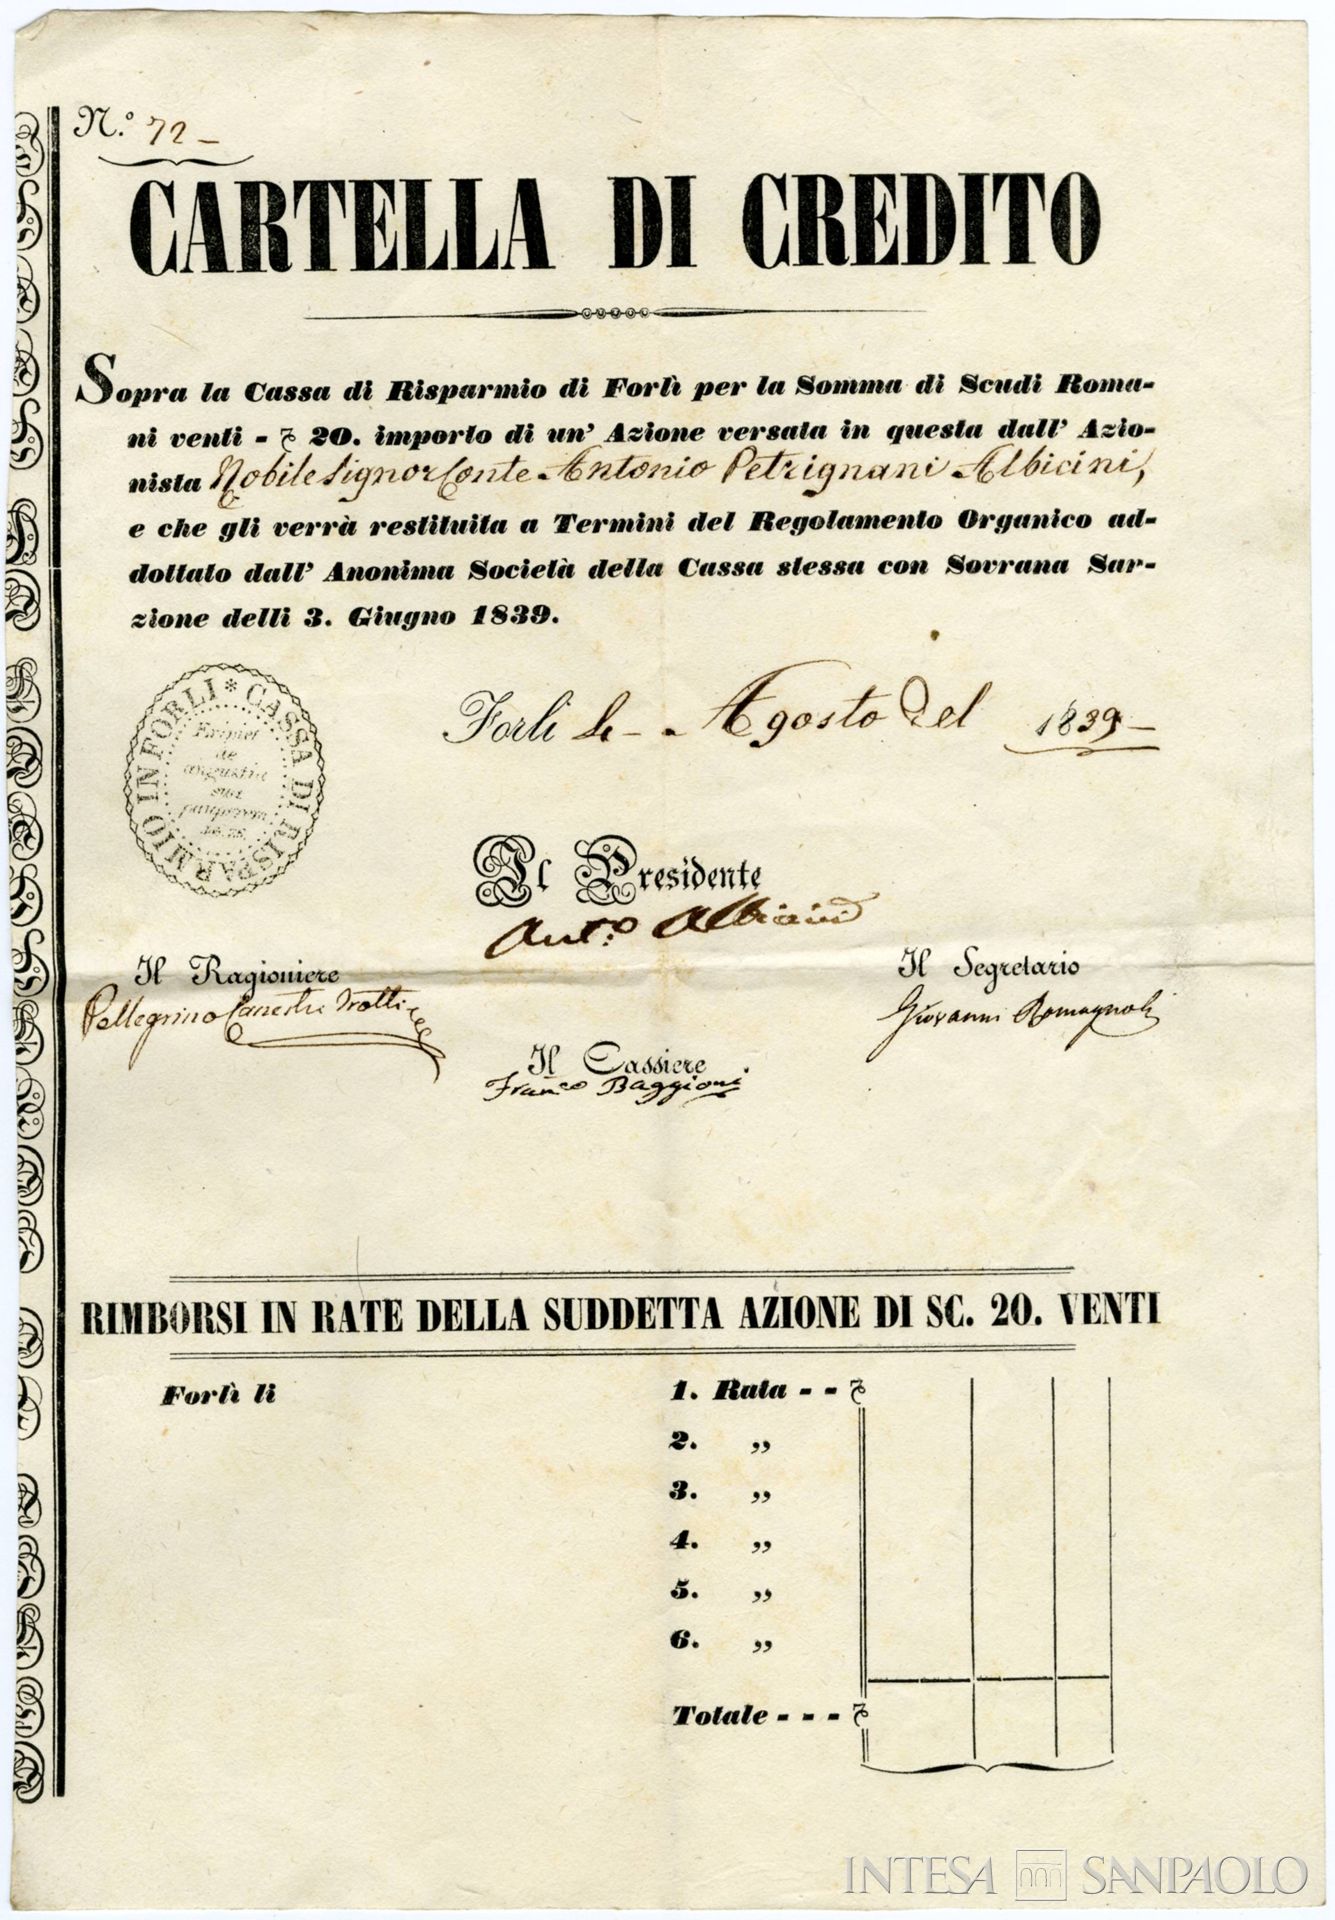 N.o 72 -
CARTELLA DI CREDITO
Sopra la Cassa di Risparmio di Forlì per la Somma di Scudi Roma-
ni venti - 20. importo di un' Azione versata in questa dall' Azio-
nista Nobile Signor Conte Antonio Petrignani Albicini,
e che gli verrà restituita a Termini del Regolamento Organico ad-
dottato dall' Anonima Società della Cassa stessa con Sovrana San-
zione delli 3. Giugno 1839.
CASSA DI RISPARMIO IN FORLI
Eripiet
de
angustia
sua
pauperem
Forlì Agosto del 1839 -
Il Presidente
Ant.o Albicini
Il Ragioniere
Il Segretario
Pellegrino Canestri Trotti
Giovanni Romagnoli
Il Cassiere
Fran.co Baggioni
RIMBORSI IN RATE DELLA SUDDETTA AZIONE DI SC. 20. VENTI
Forlì li 1. Rata - -
2. ,,
3. ,,
4. ,,
5. ,,
6. ,,
Totale - - -
INTESA SANPAOLO